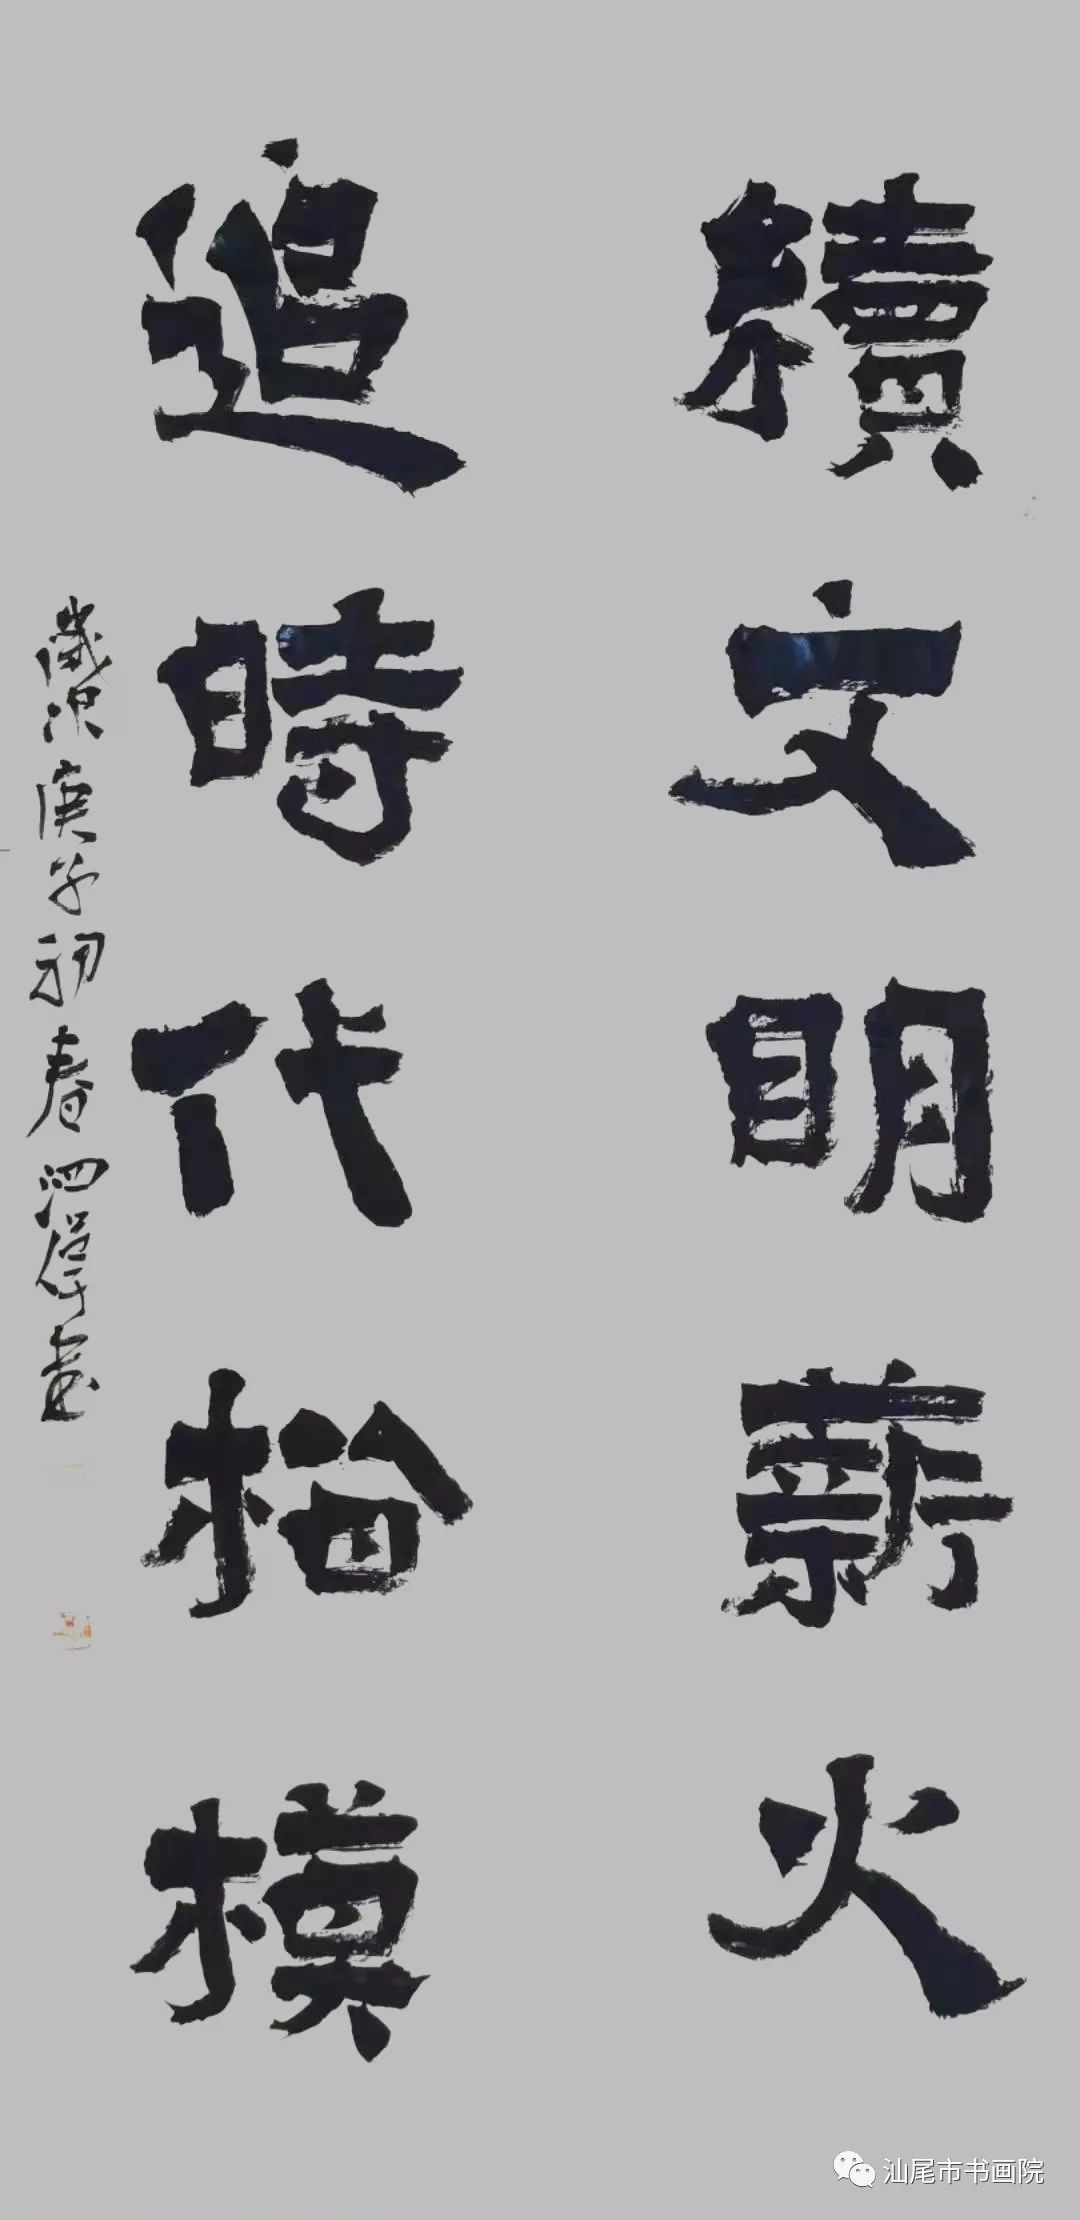 續文明薪火
追時代楷模
歲次庚子初春泗淳書
汕尾市书画院